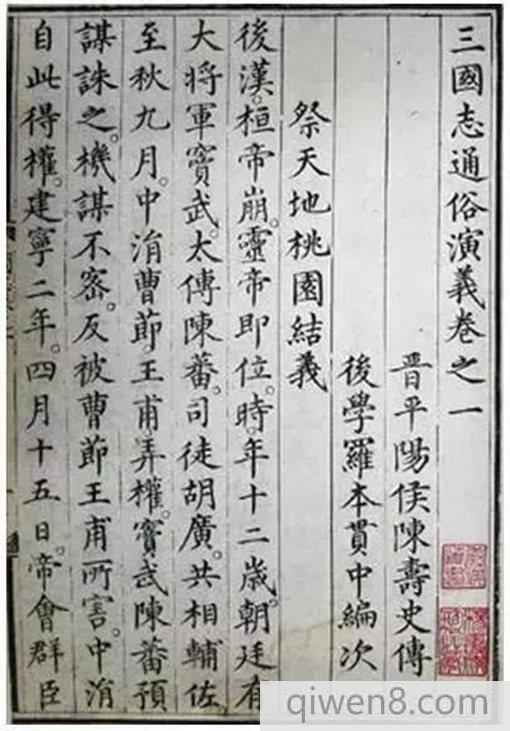 三國志通俗演義卷之一
晉平陽侯陳壽史傳
後學羅本貫中編次
祭天地桃園結義
後漢。桓帝崩。靈帝即位。時年十二歲。朝廷有
大將軍竇武。太傅陳蕃。司徒胡廣。共相輔佐
至秋九月。中涓曹節王甫弄權。竇武陳蕃預
謀誅之。機謀不密。反被曹節王甫所害。中涓
自此得權。建寧二年。四月十五日。帝會群臣
qiwen8.com